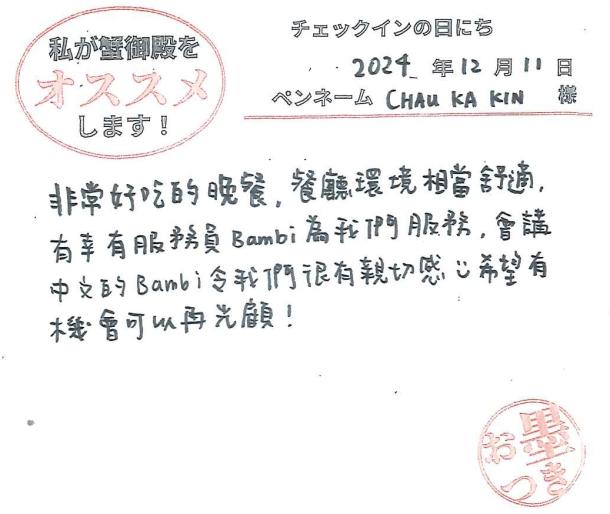 私が蟹御殿を
オススメ
します！
チェックインの日にち
2024 年 12 月 11 日
ペンネーム CHAU KA KIN 様
非常好吃的晚餐，餐廳環境相當舒適，
有幸有服務員Bambi為我們服務，會講
中文的Bambi令我們很有親切感 希望有
機會可以再光顧！
お墨
つき